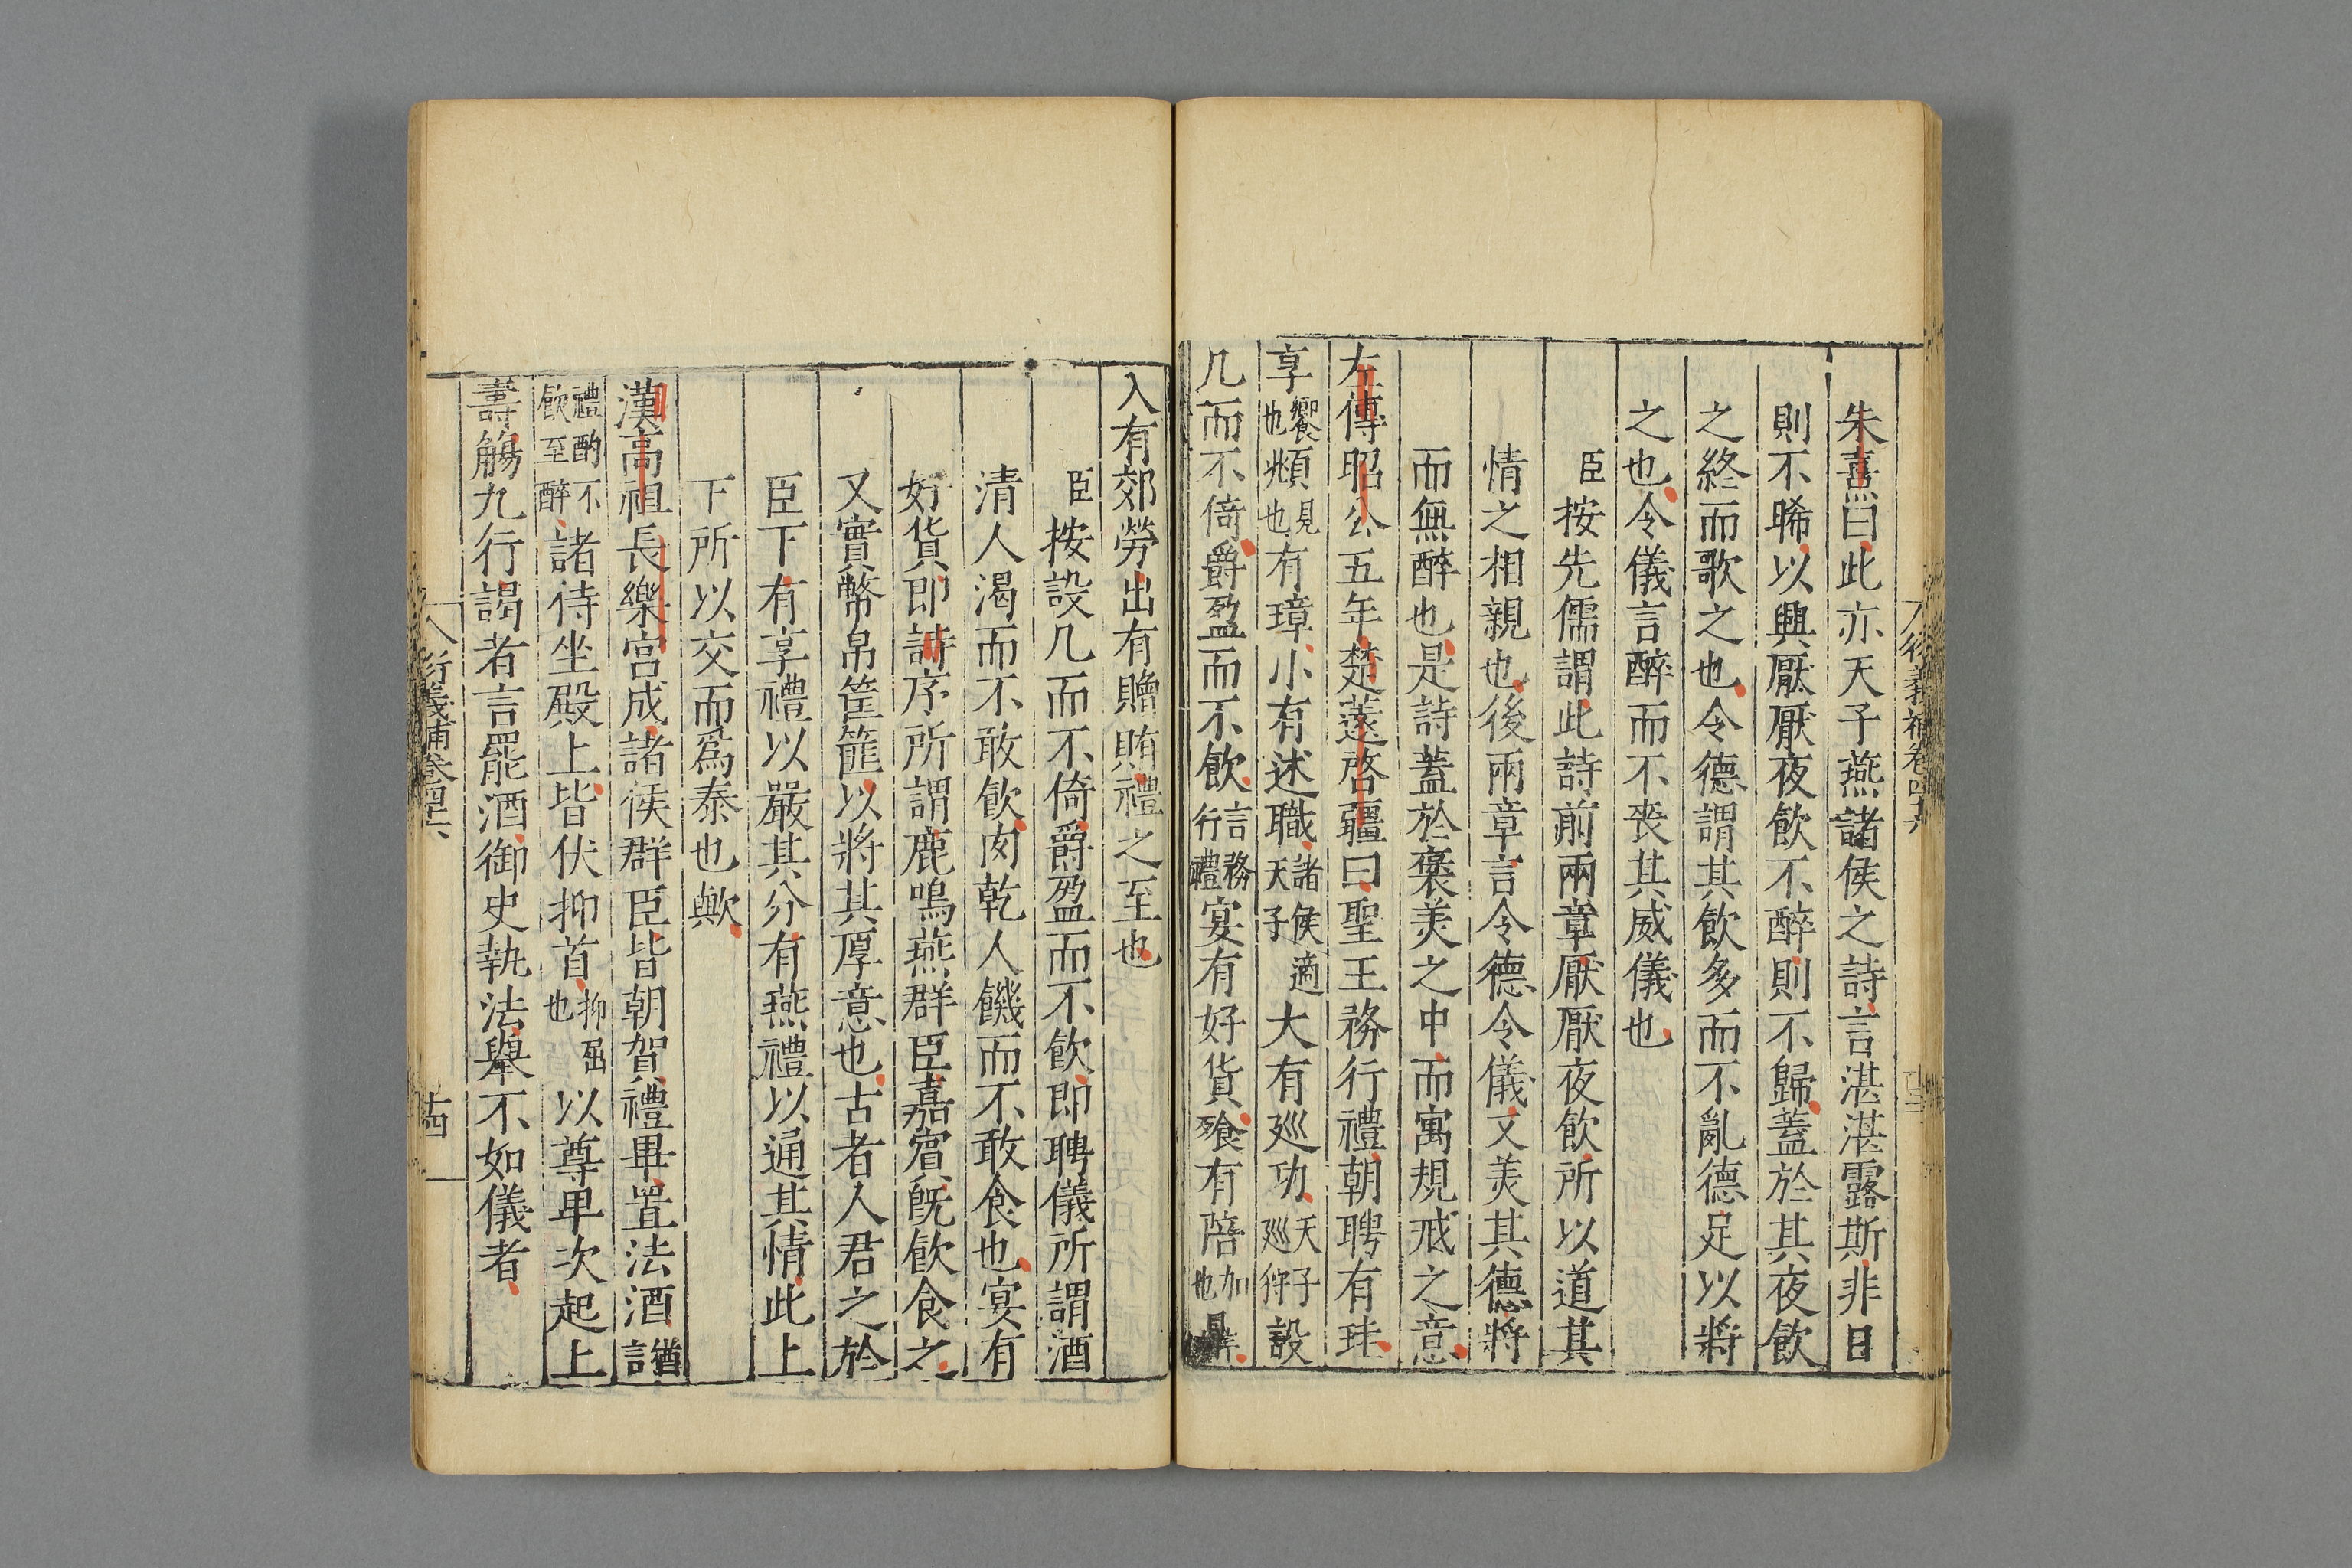 朱熹曰此亦天子燕諸侯之詩言湛湛露斯非日
則不晞以興厭厭夜飲不醉則不歸蓋於其夜飲
之終而歌之也令德謂其飲多而不亂德足以將
之也令儀言醉而不喪其威儀也
臣按先儒謂此詩前兩章厭厭夜飲所以道其
情之相親也後兩章言令德令儀又美其德將
而無醉也是詩蓋於褒美之中而寓規戒之意
左傳昭公五年楚薳啓疆曰聖王務行禮朝聘有珪
享饗也頫見也有璋小有述職諸侯適天子大有廵功天子廵狩設
几而不倚爵盈而不飲言務行禮宴有好貨飱有陪加也鼎
入有郊勞出有贈賄禮之至也
臣按設几而不倚爵盈而不飲即聘儀所謂酒
清人渴而不敢飲肉乾人饑而不敢食也宴有
好貨即詩序所謂鹿鳴燕群臣嘉賓旣飲食之
又實幣帛筐篚以將其厚意也古者人君之於
臣下有享禮以嚴其分有燕禮以通其情此上
下所以交而爲泰也歟
漢高祖長樂宮成諸侯群臣皆朝賀禮畢置法酒猶言
禮酌不飲至醉諸侍坐殿上皆伏抑首抑屈也以尊卑次起上
壽觴九行謁者言罷酒御史執法舉不如儀者
衍義補卷四十六
十四